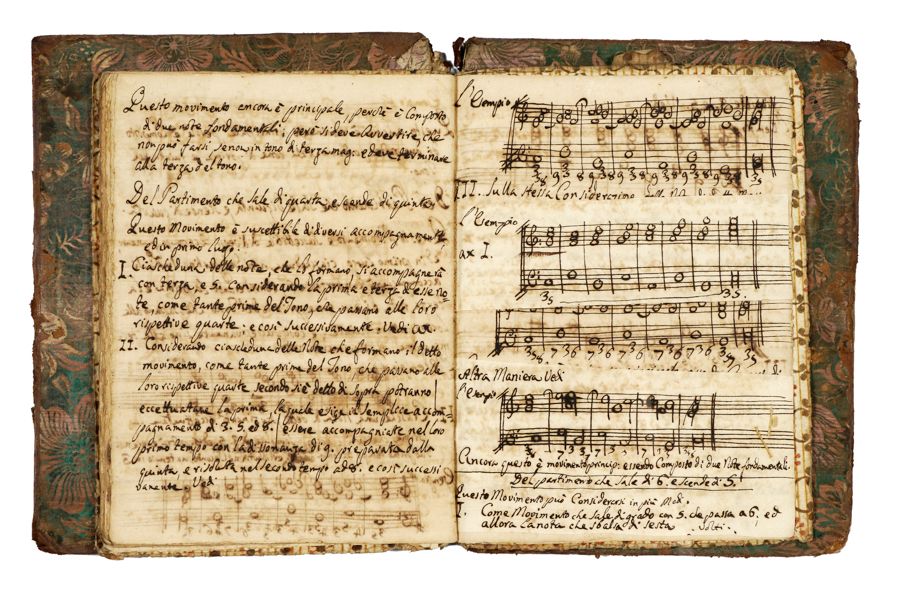 Questo movimento ancora è principale, perchè è Composto
di due note fondamentali; però si deve Avvertire, che
non può farsi se non in tono di terza mag: e deve terminare
alla terza del tono.
Del Partimento che Sale di quarta, e scende di quinta
Questo Movimento è suscettibile di diversi accompagnamenti
ed in primo luogo
I. Ciascheduna delle note, che lo formano, si accompagnerà
con terza, e 5. Considerando la prima e terza di esse no=
te, come tante prime del Tono, che passano alle loro
rispettive quarte. e così successivamente. Vedi ax.
II. Considerando ciascheduna delle Note che formano il detto
movimento, come tante prime del Tono che passano alle
loro rispettive quarte secondo si è detto di sopra potranno
eccettuatane la prima, la quale esige il semplice accom=
pagnamento di 3. 5. ed 8. essere accompagniate nel loro
primo tempo con la dissonanza di 9. preparata dalla
quinta e risoluta nel secondo tempo ad 8. e così successi
vamente Vedi
l'Esempio
3 8 9 3 8 9 3 8 9 3 8 9 3 8 9 3 5
III. Sulla stessa Considerazione
l'Esempio
ax I.
3 5 3 5.
3 5 8 7 3 6 7 3 6 7 3 6 7 3 6 7 3 5
Altra Maniera Vedi
l'Esempio
Ancora questo è movimento princip: essendo Composto di due Note fondamentali.
Del partimento che Sale di 6. e scende di 5.
Questo Movimento può Considerarsi in più Modi.
I. Come Movimento che Sale di grado con 5. che passa a 6. ed
allora la nota che sbalza di sesta